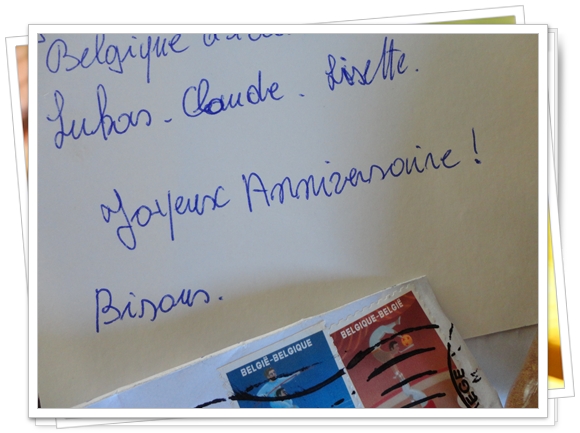 Belgique
Lukas - Claude - Lisette.
Joyeux Anniversaire !
Bisous.
BELGIË-BELGIQUE
BELGIQUE-BELGIË